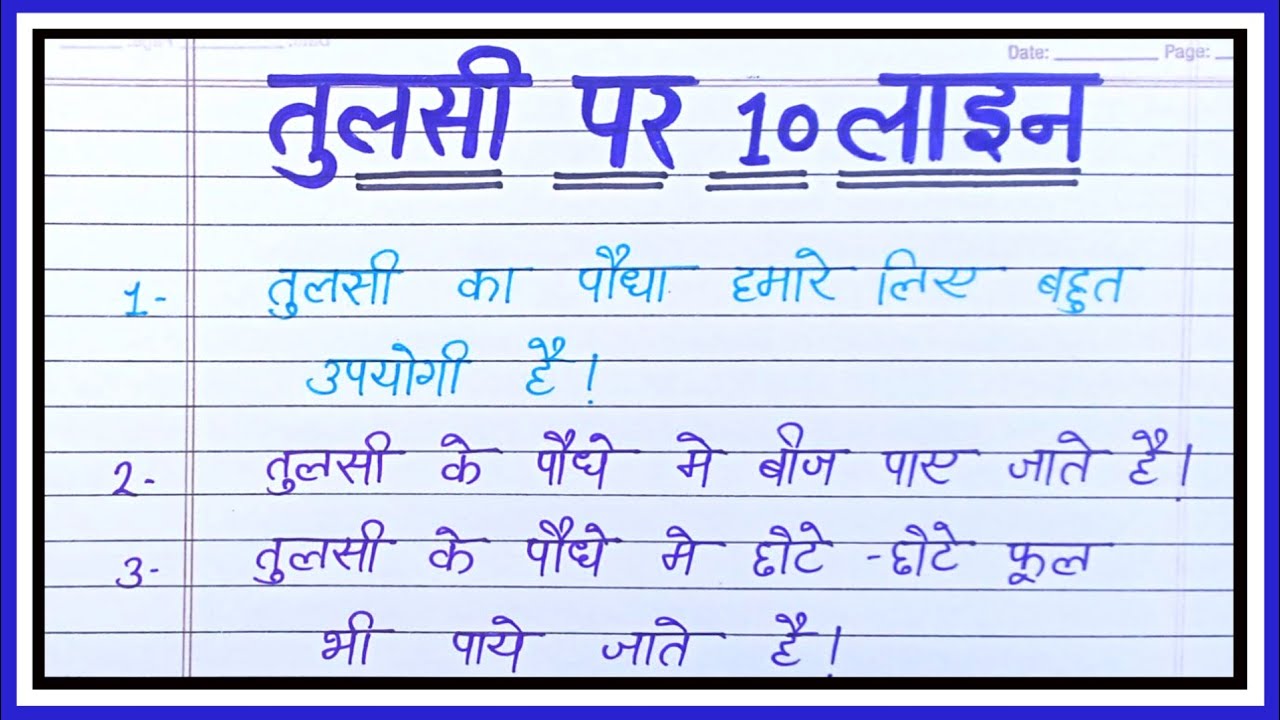 Date: Page:
तुलसी पर 10 लाइन
1- तुलसी का पौधा हमारे लिए बहुत
उपयोगी है।
2- तुलसी के पौधे मे बीज पाए जाते है।
3- तुलसी के पौधे मे छोटे -छोटे फूल
भी पाये जाते है।